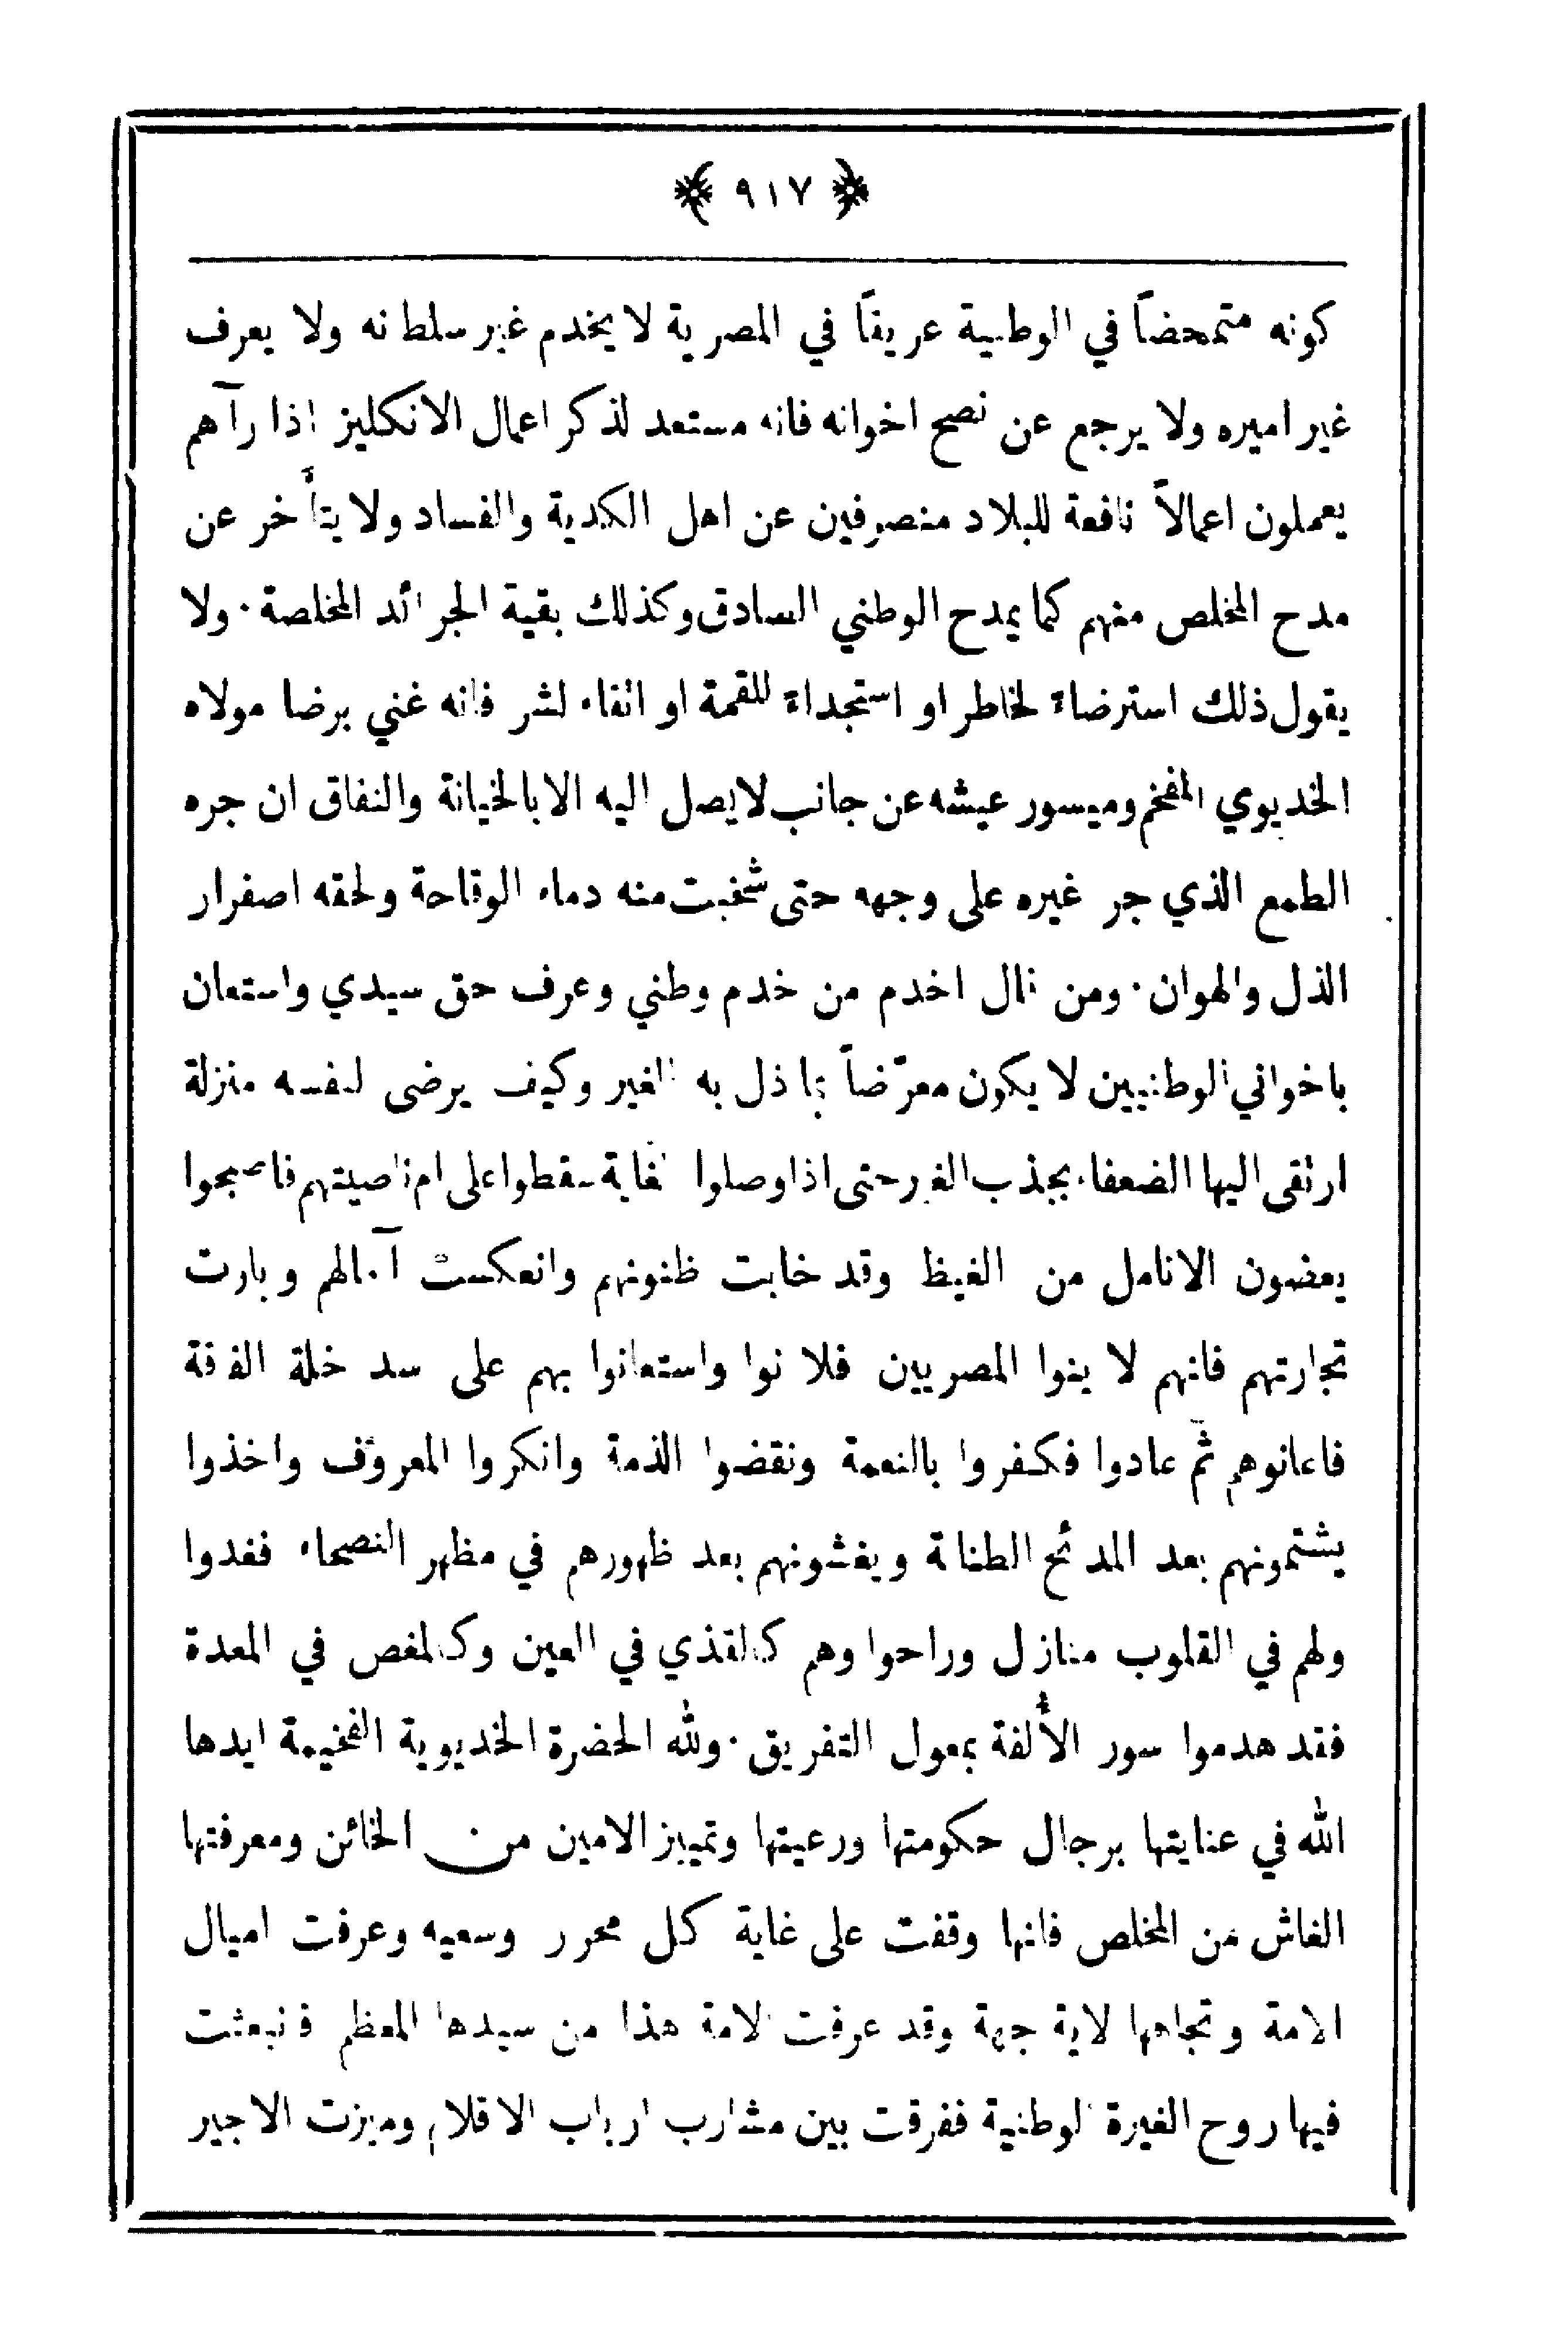 ﴿ ٩١٧ ﴾
كونه متمحضاً في الوطنية عريقاً في المصرية لا يخدم غير سلطانه ولا يعرف
غير اميره ولا يرجع عن نصح اخوانه فانه مستعد لذكر اعمال الانكليز اذا رآهم
يعملون اعمالاً نافعة للبلاد منصرفين عن اهل الكدية والفساد ولا يتأخر عن
مدح المخلص منهم كما يمدح الوطني الصادق وكذلك بقية الجرائد المخلصة ٠ ولا
يقول ذلك استرضاءً لخاطر او استجداءً للقمة او اتقاء لشر فانه غني برضا مولاه
الخديوي المفخم وميسور عيشه عن جانب لا يصل اليه الا بالخيانة والنفاق ان جره
الطمع الذي جر غيره على وجهه حتى شخبت منه دماء الوقاحة ولحقه اصفرار
الذل والهوان ٠ ومن قال اخدم من خدم وطني وعرف حق سيدي واستعان
باخواني الوطنيين لا يكون معرّضاً لما ذل به الغير وكيف يرضى لنفسه منزلة
ارتقى اليها الضعفاء بجذب الغير حتى اذا وصلوا لغاية سقطوا على ام ناصيتهم فاصبحوا
يعضون الانامل من الغيظ وقد خابت ظنونهم وانعكست آمالهم وبارت
تجارتهم فانهم لاينوا المصريين فلانوا واستعانوا بهم على سد خلة الفاقة
فاعانوهم ثم عادوا فكفروا بالنعمة ونقضوا الذمة وانكروا المعروف واخذوا
يشتمونهم بعد المدائح الطنانة ويغشونهم بعد ظهورهم في مظهر النصحاء فغدوا
ولهم في القلوب منازل وراحوا وهم كالقذي في العين وكالمغص في المعدة
فقد هدموا سور الأُلفة بمعول التفريق ٠ ولله الحضرة الخديوية الفخيمة ايدها
الله في عنايتها برجال حكومتها ورعيتها وتمييز الامين من الخائن ومعرفتها
الغاش من المخلص فانها وقفت على غاية كل محرر وسعيه وعرفت اميال
الامة وتجاهها لاية جهة وقد عرفت الامة هذا من سيدها المعظم فانبعثت
فيها روح الغيرة الوطنية ففرقت بين مشارب ارباب الاقلام وميزت الاجير